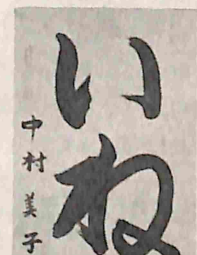 いね
中村美子